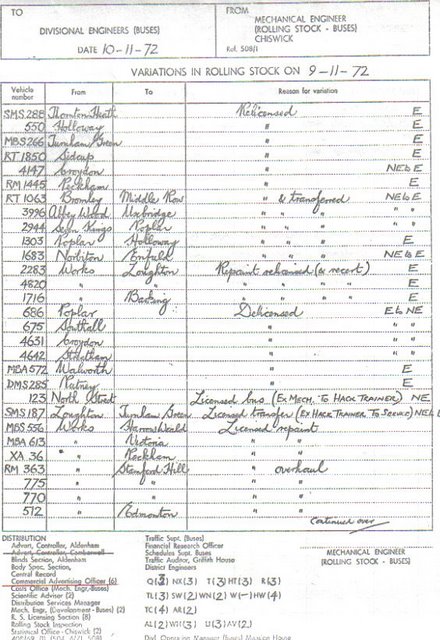 TO
FROM
DIVISIONAL ENGINEERS (BUSES)
MECHANICAL ENGINEER
(ROLLING STOCK - BUSES)
CHISWICK
DATE 10-11-72
Ref. 508/1
VARIATIONS IN ROLLING STOCK ON 9-11-72
Vehicle number From To Reason for variation
SMS 288 Thornton Heath Relicensed E
550 Holloway " E
MBS 266 Turnham Green " E
RT 1850 Sidcup " E
4147 Croydon " NE&E
RM 1445 Peckham " E
RT 1063 Bromley Middle Row " & transferred NE&E
3996 Abbey Wood Uxbridge " " " " "
2944 Seven Kings Poplar " " "
1303 Poplar Holloway " " " E
1683 Norbiton Enfield " " " NE&E
2283 Works Loughton Repaint relicensed (ex recert) E
4820 " " " " " " E
1716 " Barking " " " " E
686 Poplar Delicensed E&NE
675 Southall " " "
4631 Croydon " " "
4642 Streatham " " "
MBA 572 Walworth " E
DMS 285 Putney " E
123 North Street Licensed bus (EX MECH. TO HACK TRAINER) NE
SMS 187 Loughton Turnham Green Licensed transfer (EX HACK TRAINER TO SERVICE) NE&
MBS 556 Works Harrow Weald Licensed repaint
MBA 613 " Victoria " "
XA 36 " Peckham " "
RM 363 " Stamford Hill " overhaul
775 " " " "
770 " " " "
512 " Edmonton " "
Continued over
DISTRIBUTION
Advert. Controller, Aldenham
Advert. Controller, Camberwell
Blinds Section, Aldenham
Body Spec. Section,
Central Record
Commercial Advertising Officer (6)
Costs Office (Mech. Engr.-Buses)
Scientific Adviser (2)
Distribution Services Manager
Mech. Engr. (Development - Buses) (2)
R. S. Licensing Section (8)
Rolling Stock Inspection
Statistical Office - Chiswick (2)
Traffic Supt. (Buses)
Financial Research Officer
Schedules Supt. Buses
Traffic Auditor, Griffith House
District Engineers
Q(3) NX(3) T(3) HT(3) R(3)
TL(3) SW(2) WN(2) W(-) HW(4)
TC(4) AR(2)
AL(2) WH(3) U(3) AV(2)
MECHANICAL ENGINEER
(ROLLING STOCK - BUSES)